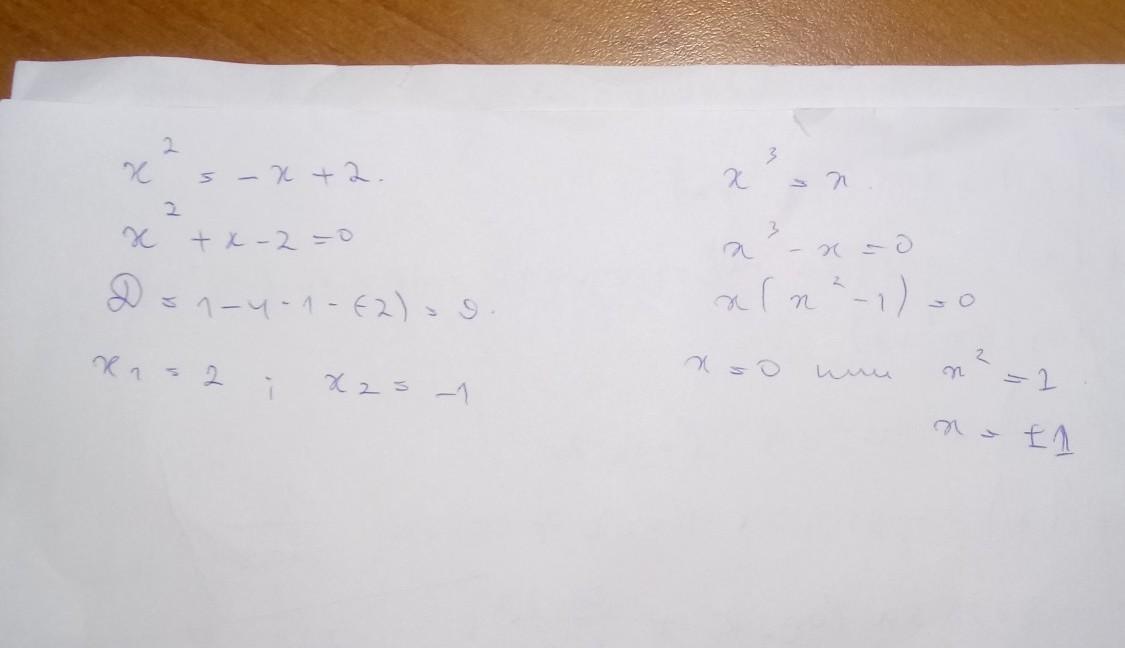 x² = -x + 2.
x² + x - 2 = 0
D = 1 - 4 · 1 · (-2) = 9.
x₁ = 2 ; x₂ = -1
x³ = x.
x³ - x = 0
x(x² - 1) = 0
x = 0 или x² = 1.
x = ±1